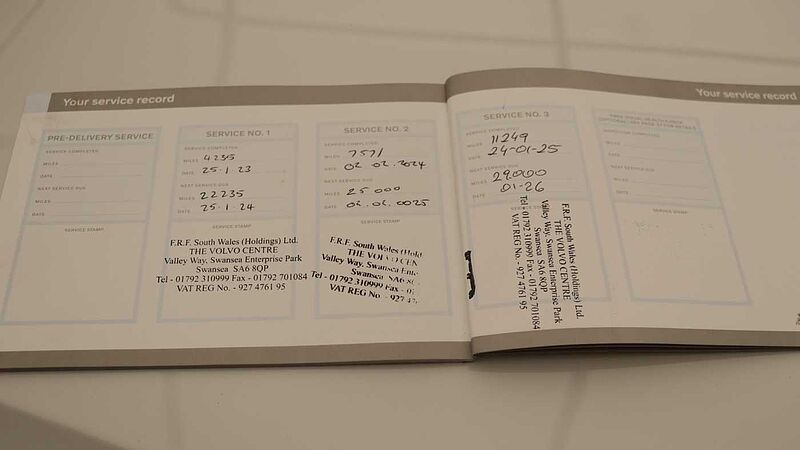 Your service record
PRE-DELIVERY SERVICE
SERVICE COMPLETED
MILES
DATE
NEXT SERVICE DUE
MILES
DATE
SERVICE STAMP
SERVICE NO. 1
SERVICE COMPLETED
MILES 4235
DATE 25·1·23
NEXT SERVICE DUE
MILES 22235
DATE 25·1·24
SERVICE STAMP
F.R.F. South Wales (Holdings) Ltd.
THE VOLVO CENTRE
Valley Way, Swansea Enterprise Park
Swansea SA6 8QP
Tel - 01792 310999 Fax - 01792 701084
VAT REG No. - 927 4761 95
SERVICE NO. 2
SERVICE COMPLETED
MILES 7571
DATE 02.02.2024
NEXT SERVICE DUE
MILES 25000
DATE 02.02.0025
SERVICE STAMP
F.R.F. South Wales (Hold
THE VOLVO CEN
Valley Way, Swansea Ente
Swansea SA6 8C
Tel - 01792 310999 Fax - 0
VAT REG No. - 927 47
SERVICE NO. 3
SERVICE COMPLETED
MILES 11249
DATE 24-01-25
NEXT SERVICE DUE
MILES 29000
DATE 01-26
F.R.F. South Wales (Holdings) Ltd.
THE VOLVO CENTRE
Valley Way, Swansea Enterprise Park
Swansea SA6 8QP
Tel - 01792 310999 Fax - 01792 701084
VAT REG No. - 927 4761 95
Your service record
SERVICE COMPLETED
MILES
DATE
NEXT SERVICE DUE
MILES
DATE
SERVICE STAMP